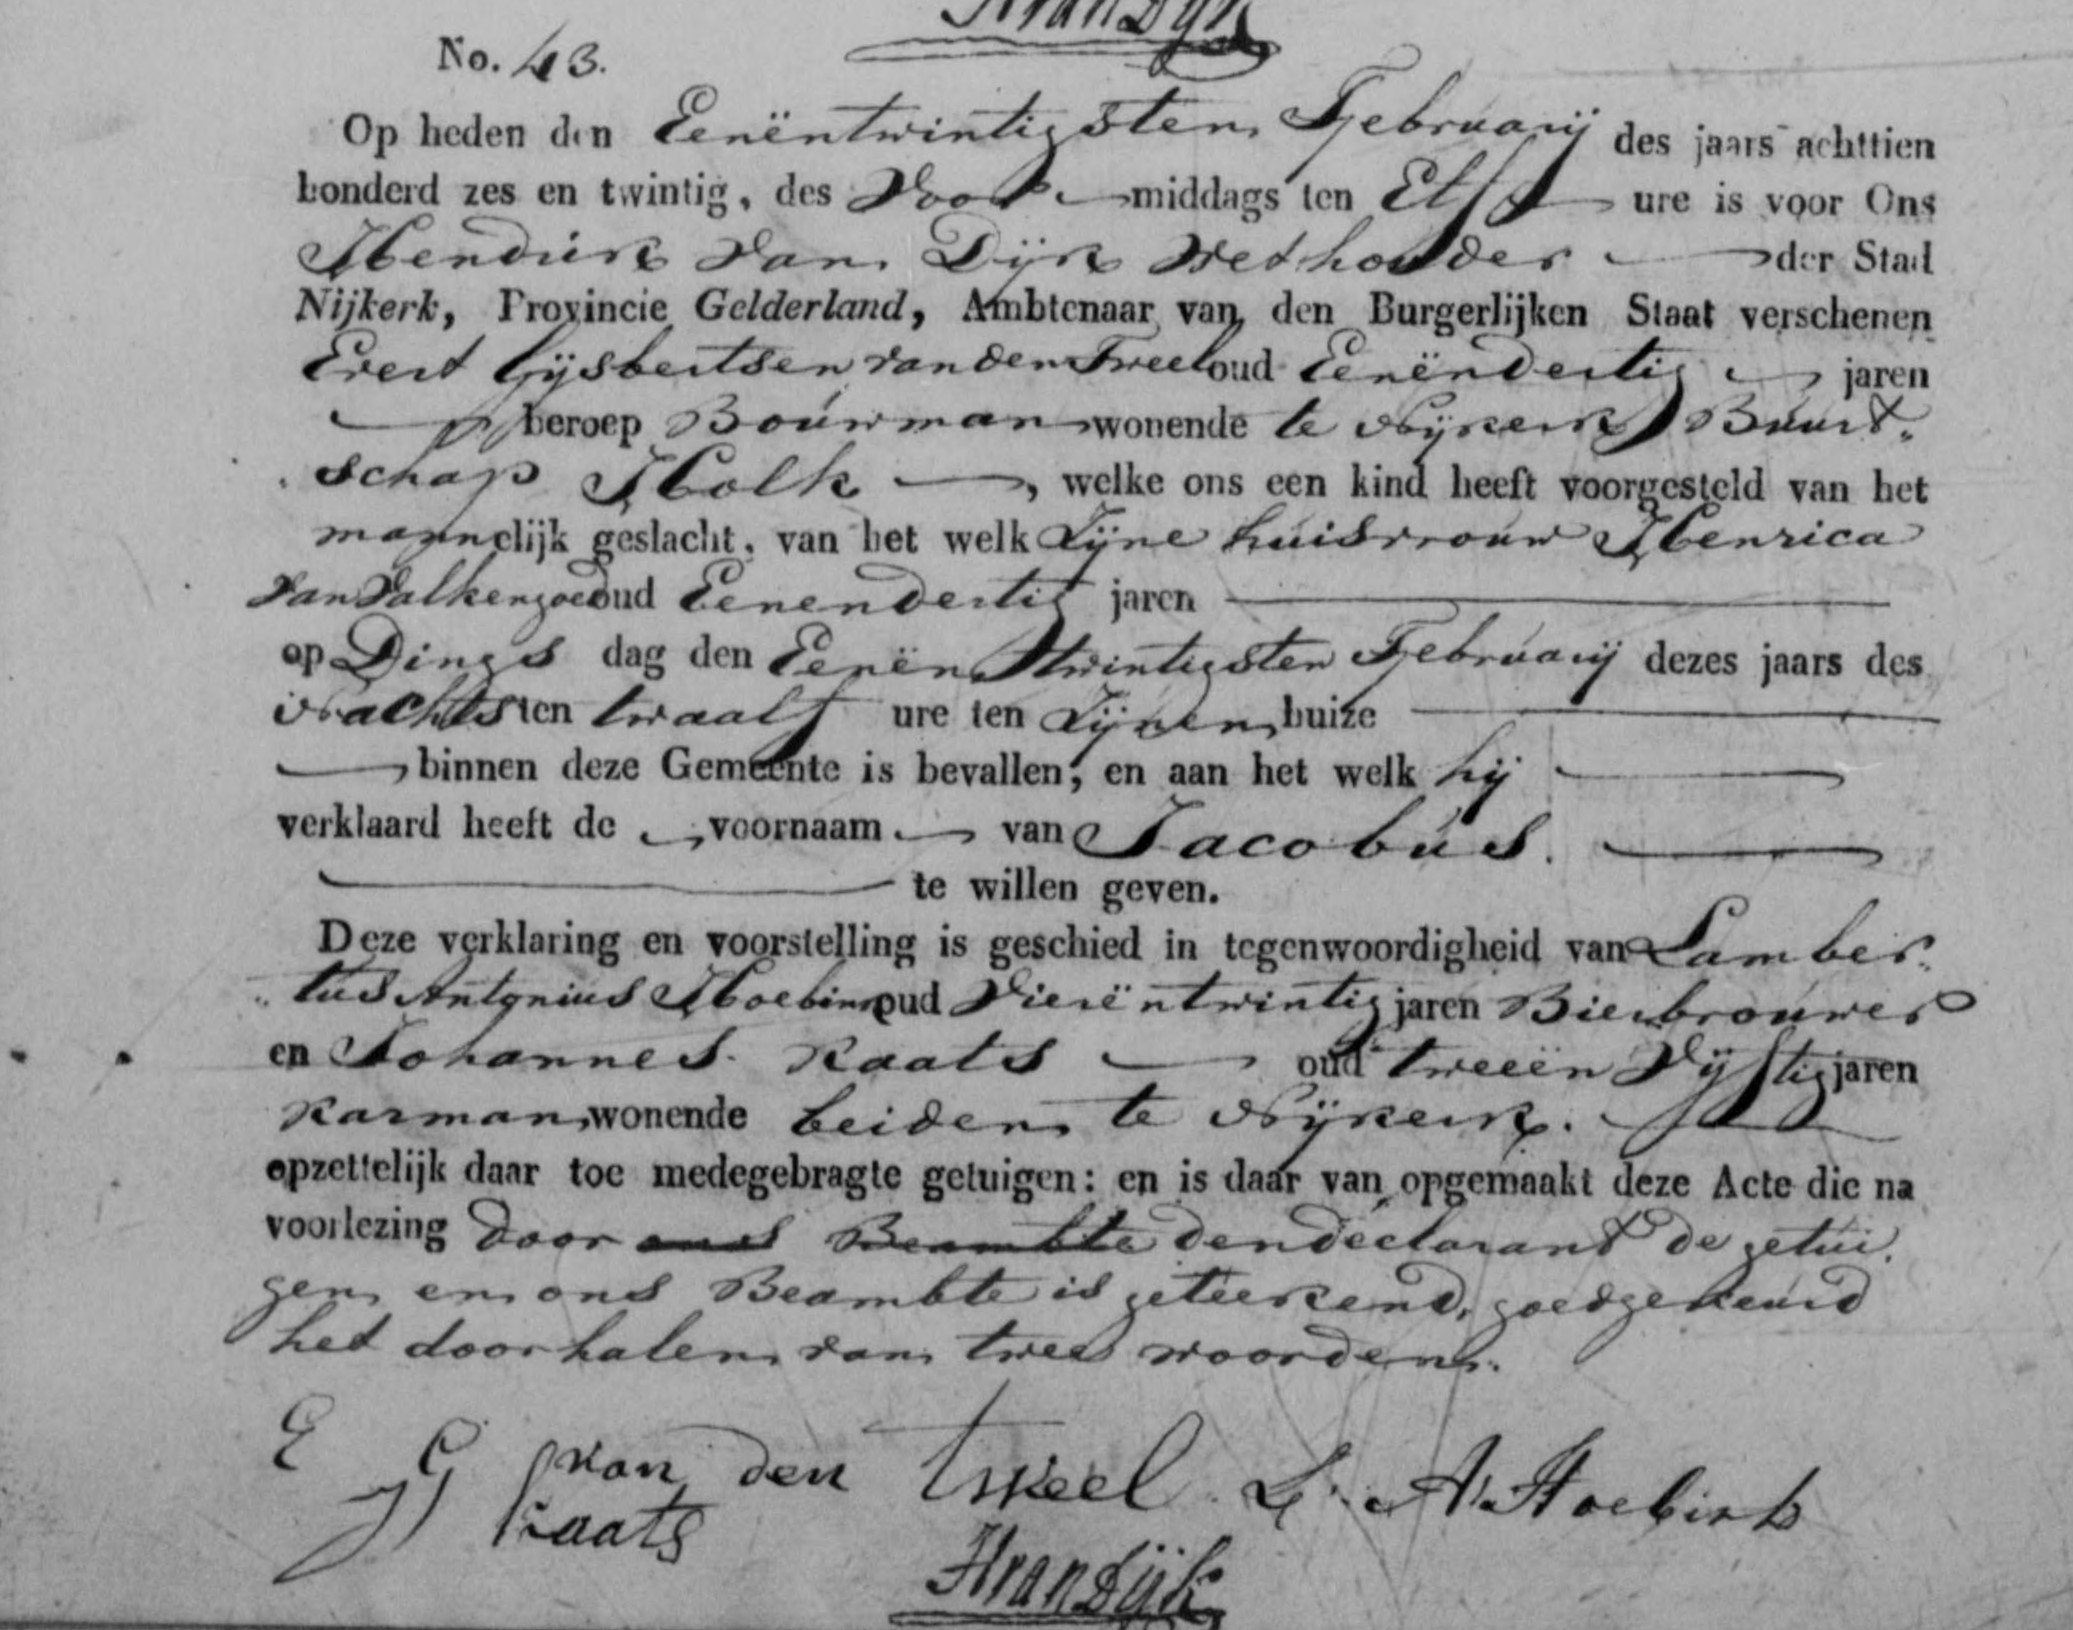 HvanDijk
No. 43.
Op heden den Eenëntwintigsten Februarij des jaars achttien
honderd zes en twintig, des Voor middags ten Elf ure is voor Ons
Hendrik van Dijk Wethouder der Stad
Nijkerk, Provincie Gelderland, Ambtenaar van den Burgerlijken Staat verschenen
Evert Gijsbertsen van den Tweel oud Eenëndertig jaren
beroep Bouwman wonende te Nijkerk Buurt„
schap Holk , welke ons een kind heeft voorgesteld van het
mannelijk geslacht, van het welk Zijne huisvrouw Henrica
van Valkengoed oud Eenendertig jaren
op Dings dag den Eenën twintigsten Februarij dezes jaars des
Nachts ten twaalf ure ten Zijnen huize
binnen deze Gemeente is bevallen, en aan het welk hij
verklaard heeft de voornaam van Jacobus.
te willen geven.
Deze verklaring en voorstelling is geschied in tegenwoordigheid van Lamber„
„tus Antonius Hoebink oud Vierëntwintig jaren Bierbrouwer
en Johannes Kaats oud tweeën Vijftig jaren
Karman wonende beiden te Nijkerk.
opzettelijk daar toe medegebragte getuigen: en is daar van opgemaakt deze Acte die na
voorlezing door ons Beambte den declarant de getui„
gen en ons Beambte is geteekend, goedgekeurd
het doorhalen van twee woorden.
E G van den tweel L. A. Hoebink
J Kaats
HvanDijk